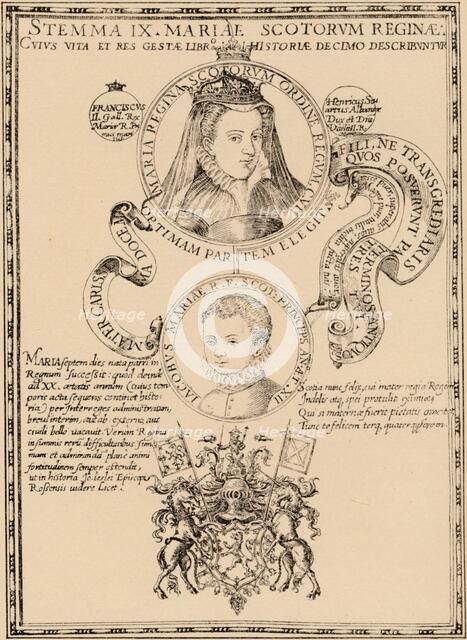 STEMMA IX. MARIAE SCOTORVM REGINÆ.
CVIVS VITA ET RES GESTÆ LIBRO HISTORIÆ DECIMO DESCRIBVNTVR
FRANCISCVS
II. Gall. Rex
Mariæ R.
Henricus Stu
artus Albaniæ
Dux et
MARIA REGINA SCOTORVM ORDINE REGVM
OPTIMAM PARTEM ELEGIT
FILI, NE TRANSGREDIARIS
QVOS POSVERVNT PA
TRES
TERMINOS ANTIQVOS
MATER CARIS
VA DOCE
IACOBVS MARIAE R. F. SCOT. PRINCEPS AN. ÆT. XII
MARIA septem dies nata patri in
Regnum successit: quod deinde
ad XX. ætatis annum (cuius tem
poris acta sequens continet histo
ria) per Interreges administratum,
breui interim, aut ab externo, aut
ciuili bello vacauit. Verùm Regina
in summis rerū difficultatibus sum̄
mam et admirandā plane animi
fortitudinem semper ostendit,
ut in historia Io. Leslei Episcopi
Rossensis uidere licet.
Scotia nunc felix, cui mater regia Regem
Indolis atq, spei protulit eximiæ,
Qui si maternæ fuerit pietatis
Tunc te felicem terq, quater
heritage
Image
heritage
Image
heritage
Image
heritage
Image